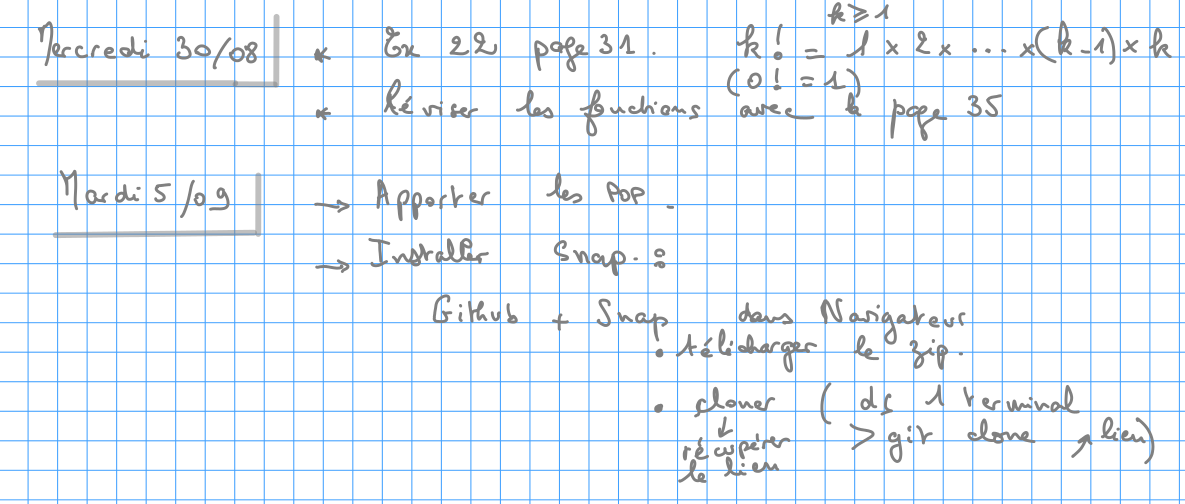 k ⩾ 1
Mercredi 30/08 * Ex 22 page 31. k! = 1 × 2 × ... × (k-1) × k
(0! = 1)
* Réviser les fonctions avec le page 35
Mardi 5/09 → Apporter les POP.
→ Installer Snap. :
Github + Snap dans Navigateur
• télécharger le zip.
• cloner ( ds 1 terminal
↓
récupérer > git clone ↗ lien)
le lien